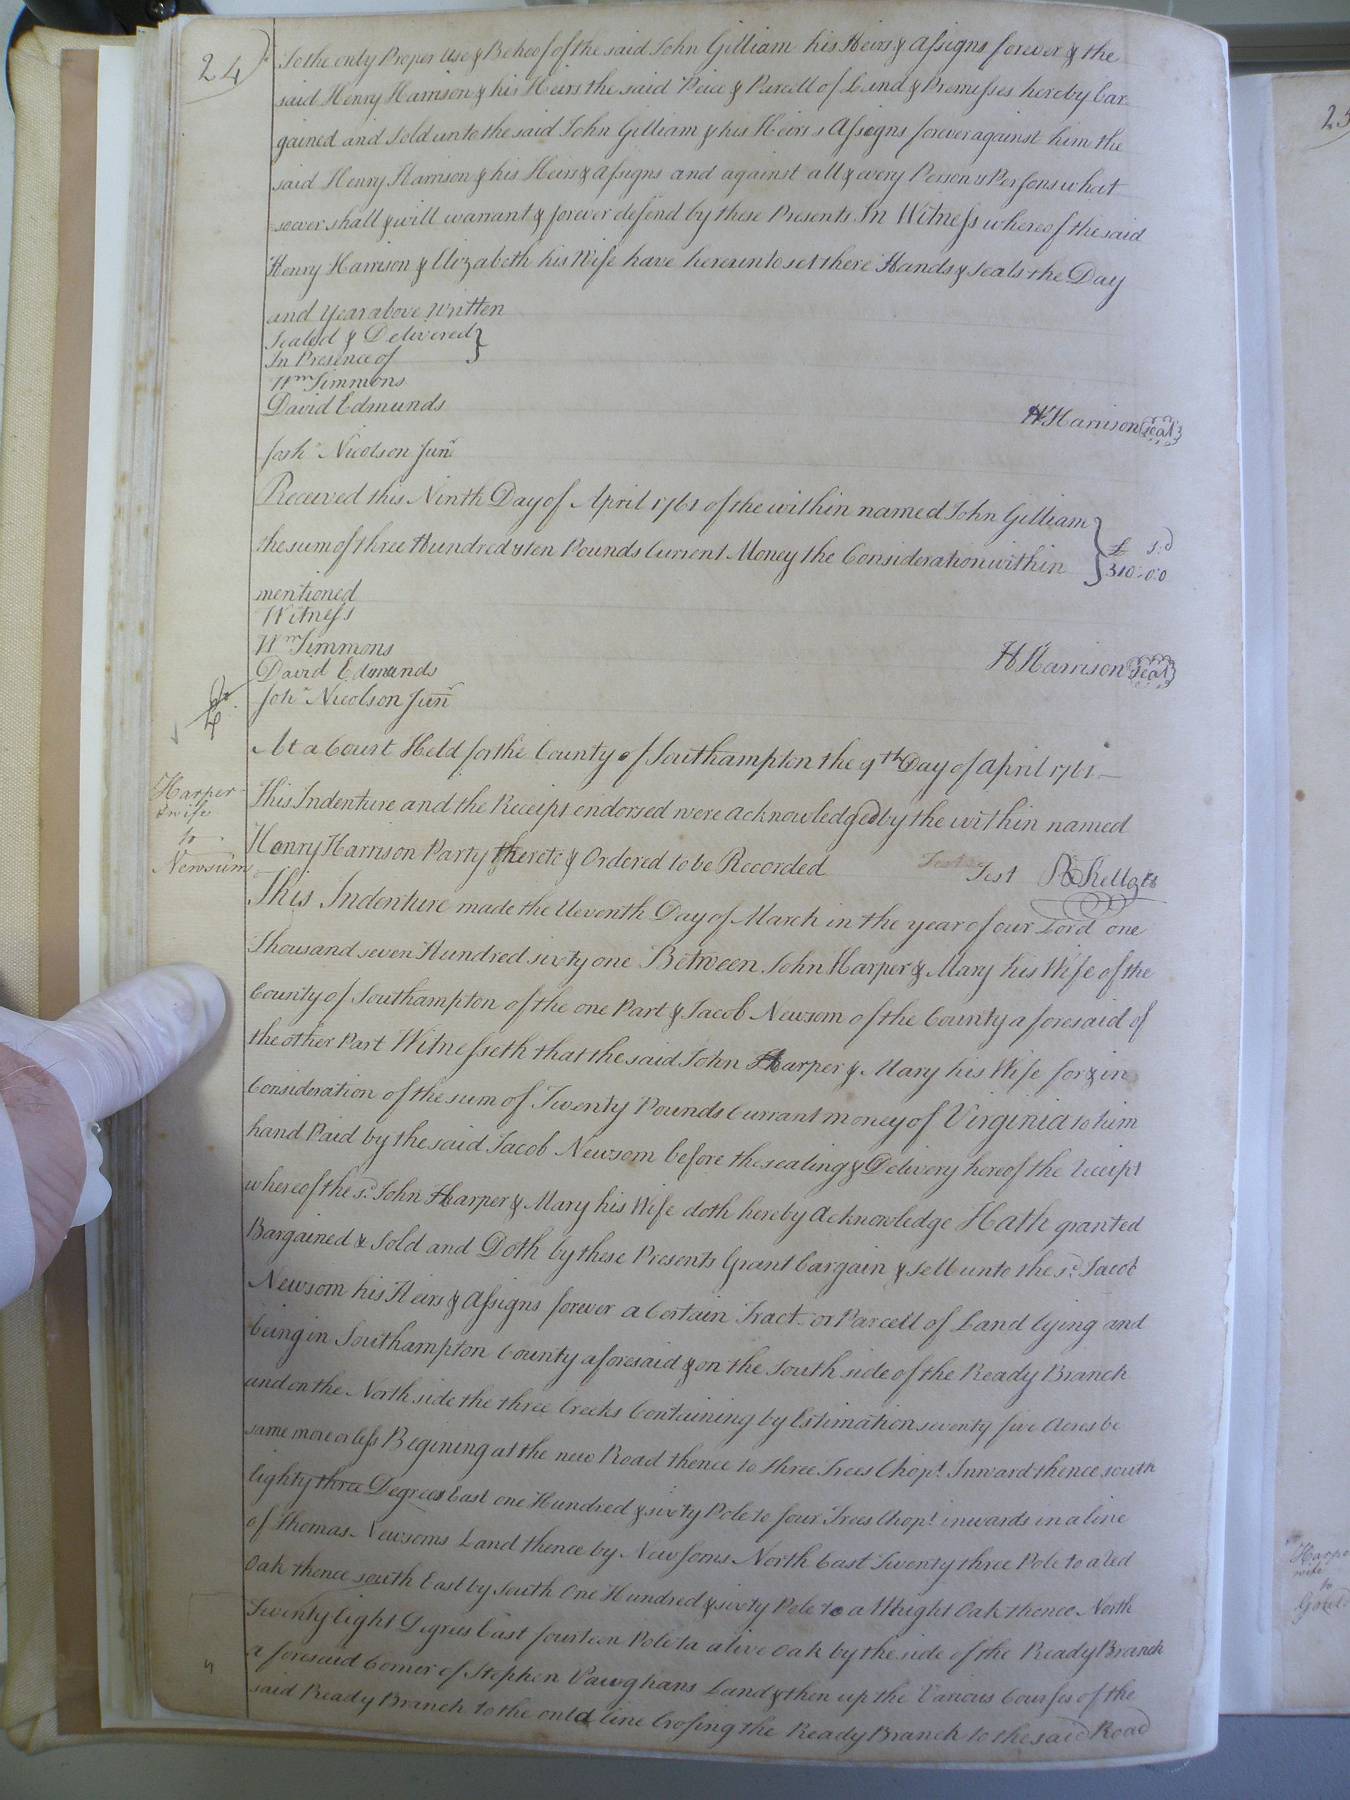 24
To the only Proper Use & Behoof of the said John Gilliam his Heirs & Assigns forever & the
said Henry Harrison & his Heirs the said Peice & Parcell of Land & Premisses hereby bar
gained and Sold unto the said John Gilliam & his Heirs & Assigns forever against him the
said Henry Harrison & his Heirs & Assigns and against all & every Person & Persons what
soever shall & will warrant & forever defend by these Presents In Witness whereof the said
Henry Harrison & Elizabeth his Wife have hereunto set there Hands & Seals the Day
and Year above Written
Sealed & Delivered }
In Presence of
Wm Simmons
David Edmunds
H Harrison Seal
Josh Nicolson Junr
Received this Ninth Day of April 1761 of the within named John Gilliam
the sum of three Hundred & ten Pounds Current Money the Consideration within } £ s:d 310:0:0
mentioned
Witness
Wm Simmons
David Edmunds
H Harrison Seal
Joh Nicolson Junr
At a Court Held for the County of Southampton the 9th Day of April 1761
This Indenture and the Receipt endorsed were acknowledged by the within named
Henry Harrison Party thereto & Ordered to be Recorded Test R Kello Ck
Harper
& wife
to
Newsum
This Indenture made the Eleventh Day of March in the year of our Lord one
Thousand seven Hundred sixty one Between John Harper & Mary his Wife of the
County of Southampton of the one Part & Jacob Newsom of the County aforesaid of
the other Part Witnesseth that the said John Harper & Mary his Wife for & in
Consideration of the sum of Twenty Pounds Currant money of Virginia to him
hand Paid by the said Jacob Newsom before the sealing & Delivery hereof the receipt
whereof the sd. John Harper & Mary his Wife doth hereby Acknowledge Hath granted
Bargained & Sold and Doth by these Presents Grant bargain & sell unto the sd. Jacob
Newsom his Heirs & Assigns forever a Certain Tract or Parcell of Land lying and
being in Southampton County aforesaid & on the South side of the Ready Branch
and on the North side the three Creeks Containing by Estimation seventy five Acres be
same more or less Begining at the new Road thence to three Trees Chopt. Inward thence south
Eighty three Degrees East one Hundred & sixty Pole to four Trees Chopt. inwards in a line
of Thomas Newsoms Land thence by Newsoms North East Twenty three Pole to a Red
Oak thence south East by South One Hundred & sixty Pole to a Whight Oak thence North
Twenty Eight Degrees East fourteen Pole to a live Oak by the side of the Ready Branch
aforesaid Corner of Stephen Vawghans Land & then up the Various Courses of the
said Ready Branch to the ould line Crossing the Ready Branch to the said Road
25
Harper
wife
to